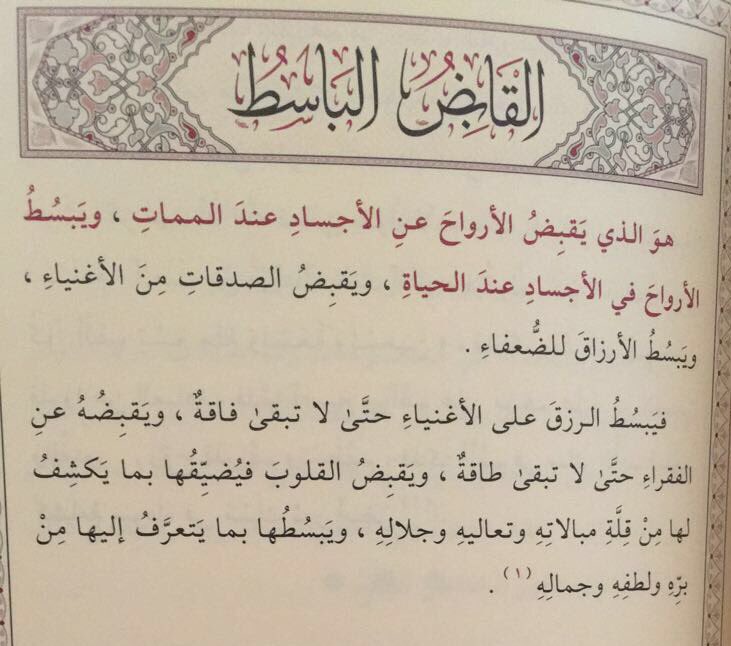 القَابِضُ البَاسِطُ
هوَ الذي يَقبِضُ الأرواحَ عنِ الأجسادِ عندَ المماتِ ، ويَبسُطُ
الأرواحَ في الأجسادِ عندَ الحياةِ ، ويَقبِضُ الصدقاتِ مِنَ الأغنياءِ ،
ويَبسُطُ الأرزاقَ للضُّعفاءِ .
فيَبسُطُ الرزقَ على الأغنياءِ حتَّىٰ لا تبقىٰ فاقةٌ ، ويَقبِضُهُ عنِ
الفقراءِ حتَّىٰ لا تبقىٰ طاقةٌ ، ويَقبِضُ القلوبَ فيُضيِّقُها بما يَكشِفُ
لها مِنْ قِلَّةِ مبالاتِهِ وتعاليهِ وجلالِهِ ، ويَبسُطُها بما يَتعرَّفُ إليها مِنْ
برِّهِ ولطفِهِ وجمالِهِ (١) .